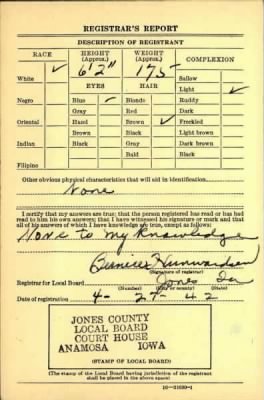 REGISTRAR'S REPORT
DESCRIPTION OF REGISTRANT
RACE HEIGHT (Approx.) WEIGHT (Approx.) COMPLEXION
White ✓ 6'2" 175 Sallow
EYES HAIR Light ✓
Negro Blue ✓ Blonde Ruddy
Gray Red Dark
Oriental Hazel Brown ✓ Freckled
Brown Black Light brown
Indian Black Gray Dark brown
Bald Black
Filipino
Other obvious physical characteristics that will aid in identification
None
I certify that my answers are true; that the person registered has read or has had
read to him his own answers; that I have witnessed his signature or mark and that
all of his answers of which I have knowledge are true, except as follows:
None to my Knowledge
Bernice
(Signature of registrar)
Registrar for Local Board Jones Ia
(Number) (City or county) (State)
Date of registration 4-27-42
JONES COUNTY
LOCAL BOARD
COURT HOUSE
ANAMOSA IOWA
(STAMP OF LOCAL BOARD)
(The stamp of the Local Board having jurisdiction of the registrant
shall be placed in the above space.)
16-21630-1